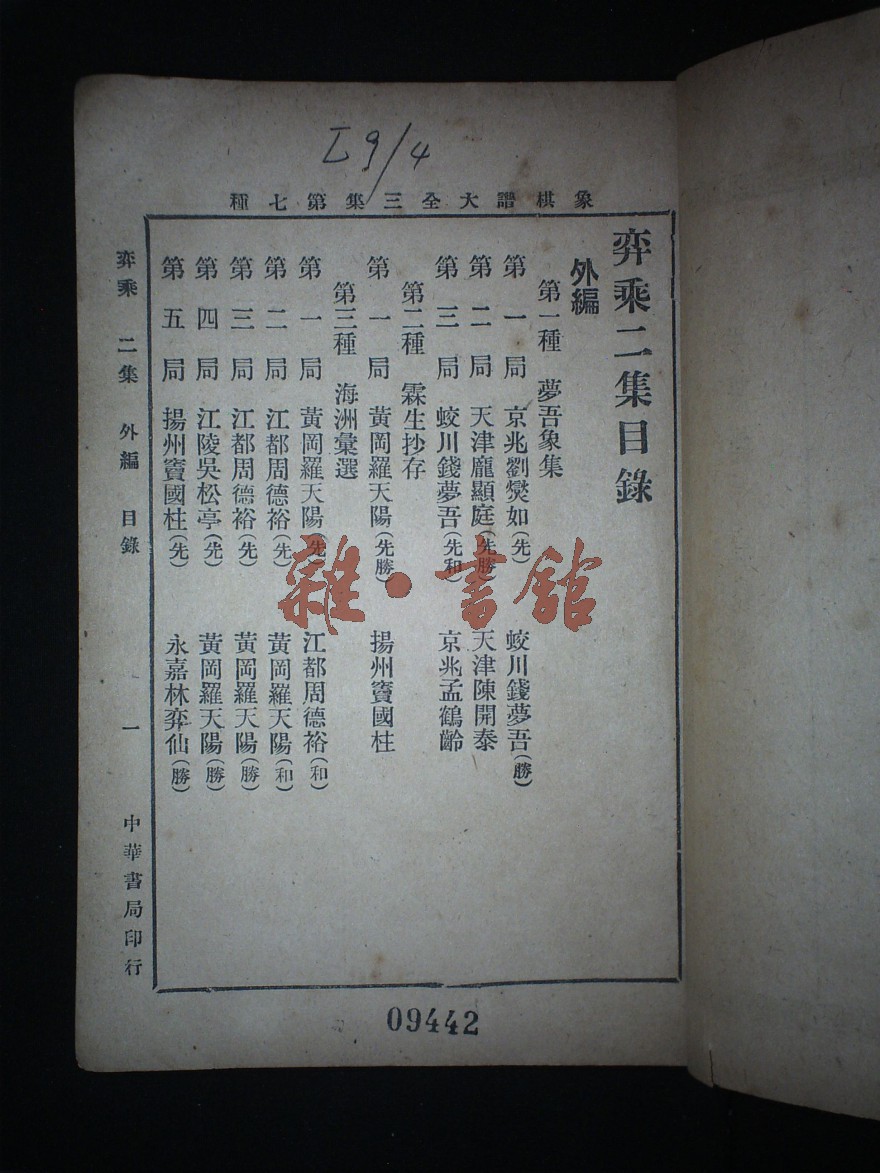 I9/4
象棋譜大全三集第七種
弈乘二集目錄
外編
第一種 夢吾象集
第一局 京兆劉爕如(先) 蛟川錢夢吾(勝)
第二局 天津龐顯庭(先勝) 天津陳開泰
第三局 蛟川錢夢吾(先和) 京兆孟鶴齡
第二種 霖生抄存
第一局 黃岡羅天陽(先勝) 揚州竇國柱
第三種 海洲彙選
第一局 黃岡羅天陽(先) 江都周德裕(和)
第二局 江都周德裕(先) 黃岡羅天陽(和)
第三局 江都周德裕(先) 黃岡羅天陽(勝)
第四局 江陵吳松亭(先) 黃岡羅天陽(勝)
第五局 揚州竇國柱(先) 永嘉林弈仙(勝)
弈乘 二集 外編 目錄 一 中華書局印行
雜·書館
09442